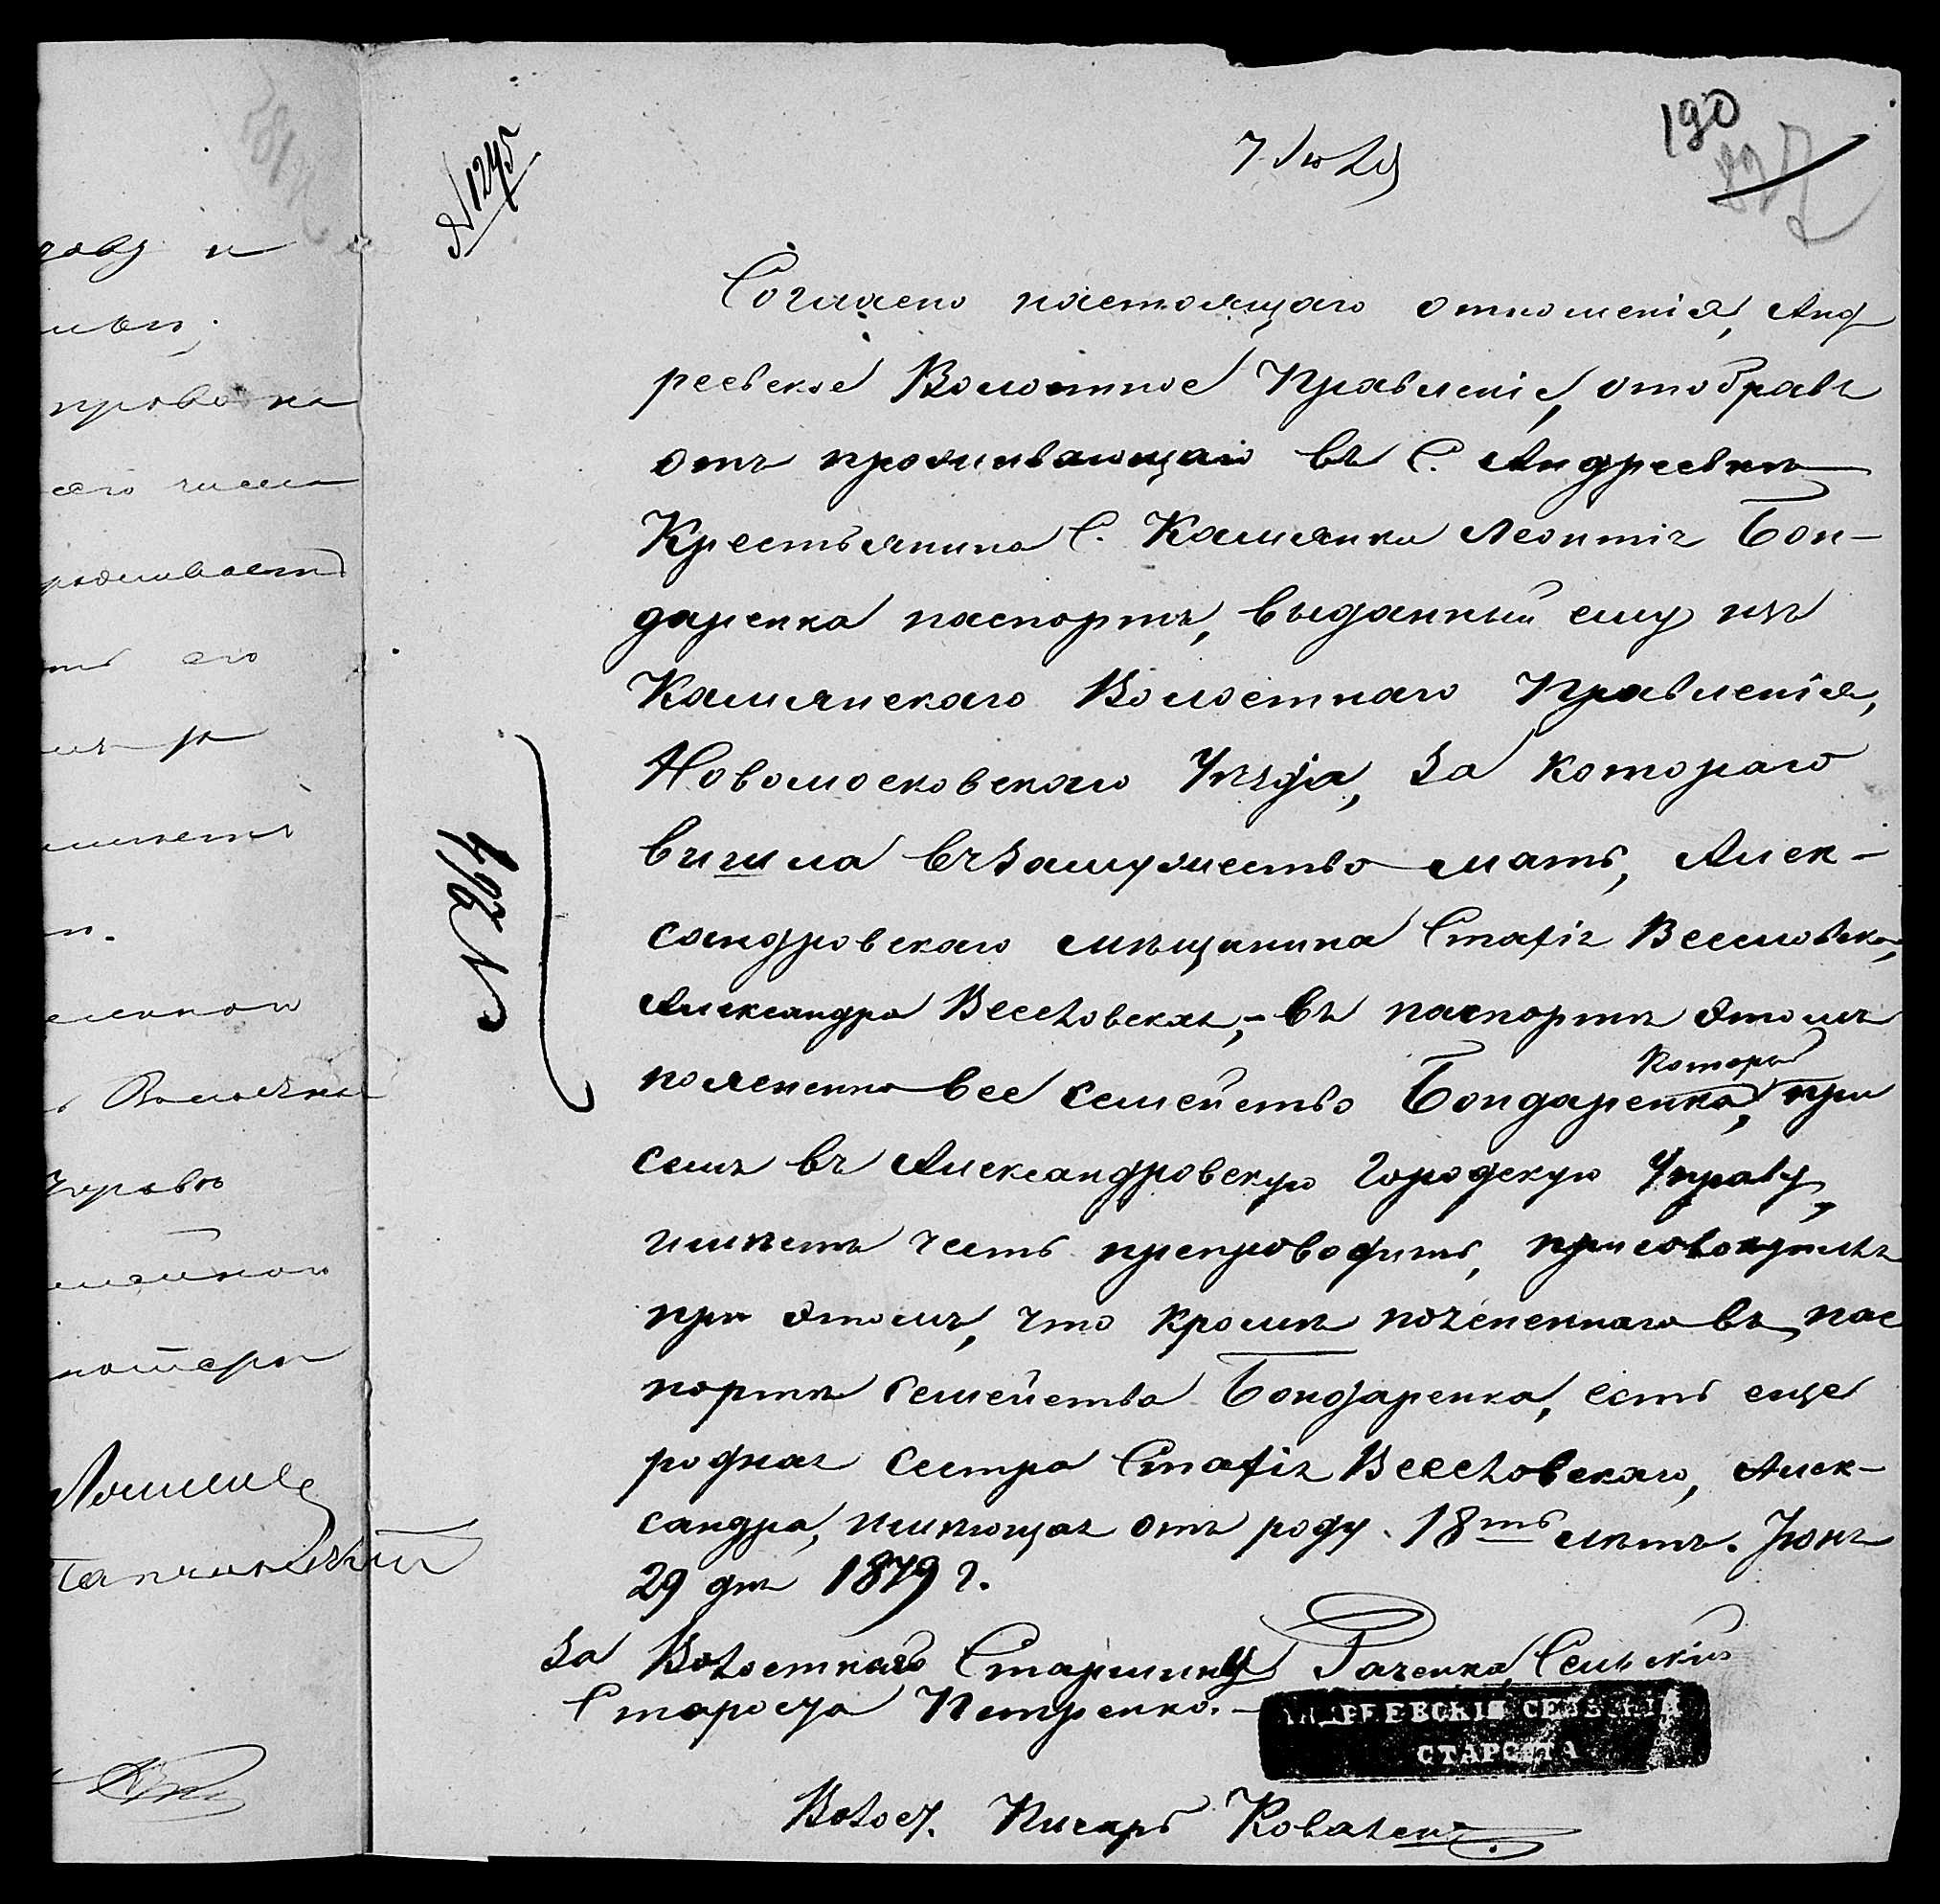 190
827
7 Июля
№ 1245
Согласно настоящаго отношенія, Анд
реевское Волостное Правленіе, отобравъ
отъ проживающаго въ С. Андреевкѣ
Крестьянина С. Камянки Леонтія Бон-
даренка паспортъ, выданный ему изъ
Камянскаго Волостнаго Правленія,
Новомосковскаго Уѣзда, за котораго
вишла въ замужество мать, Алек-
сандровскаго мѣщанина Стафія Веселовскаго,
Александра Веселовская,- въ паспортѣ этомъ
поясненно все семейство Бондаренка, который при
семъ въ Александровскую Городскую Управу,
имѣетъ честь препроводить, присовокупляя
при этомъ, что кромѣ поясненнаго въ пас
портѣ семейства Бондаренка, есть еще
родная сестра Стафія Веселовскаго, Алек-
сандра, имѣющая отъ роду 18ть лѣтъ. Іюня
29 дня 1879 г.
За Волостнаго Старшину Раченко Сельскій
Староста Петренко.-
АНДРЕЕВСКІЙ СЕЛЬСКІЙ
СТАРОСТА
Волос. Писарь Коваленко
раву и
его числа
его